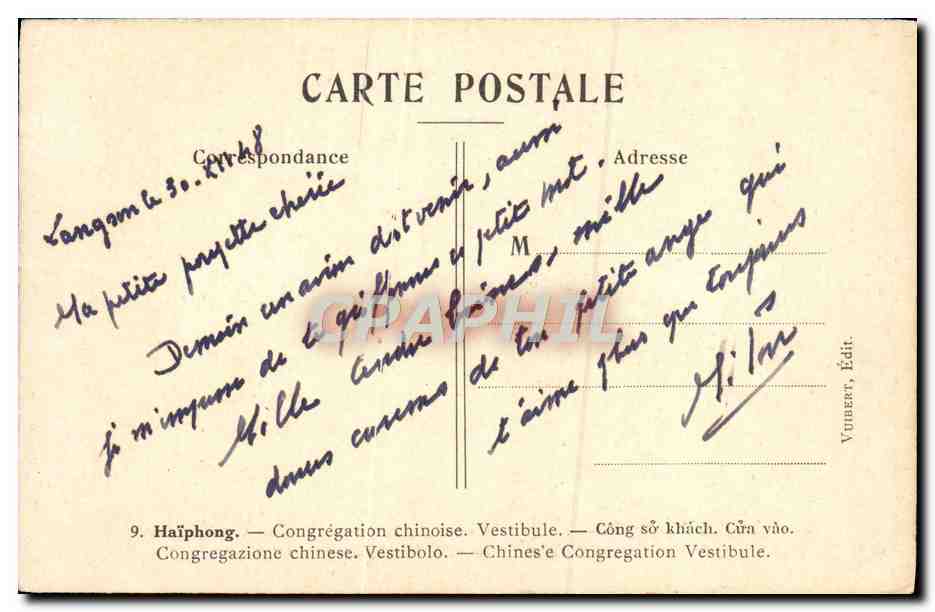 CARTE POSTALE
Correspondance
Adresse
Langson le 30. XII 48
Ma petite poupette chérie
Demain un avion doit venir, aussi
je m'empresse de te griffonner ce petit mot.
Mille tendres baisers, mille
douces caresses de ton petit ange qui
t'aime plus que toujours
M
CPAPHIL
VUIBERT, Édit.
9. Haïphong. — Congrégation chinoise. Vestibule. — Công sở khách. Cửa vào.
Congregazione chinese. Vestibolo. — Chines'e Congregation Vestibule.